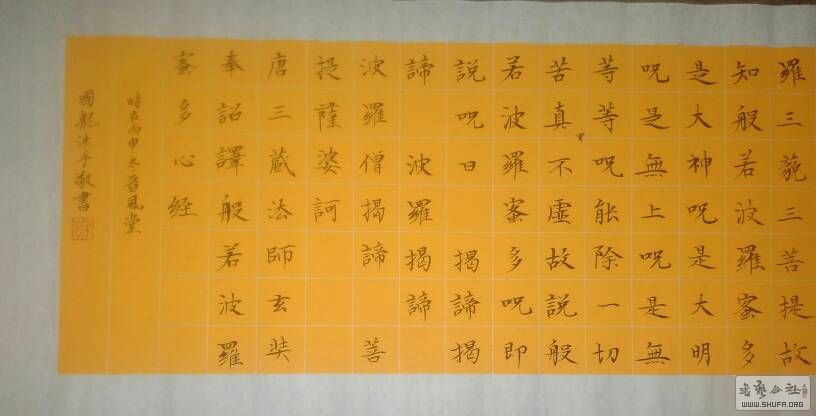 羅三藐三菩提故
知般若波羅蜜多
是大神咒是大明
咒是無上咒是無
等等咒能除一切
苦真不虛故說般
若波羅蜜多咒即
說咒曰 揭諦揭
諦 波羅揭諦
波羅僧揭諦 菩
提薩婆訶
唐三藏法師玄奘
奉詔譯般若波羅
蜜多心経
時在丙申 晋風堂
國龍沐手敬書
書藝公社
WWW.SHUFA.ORG